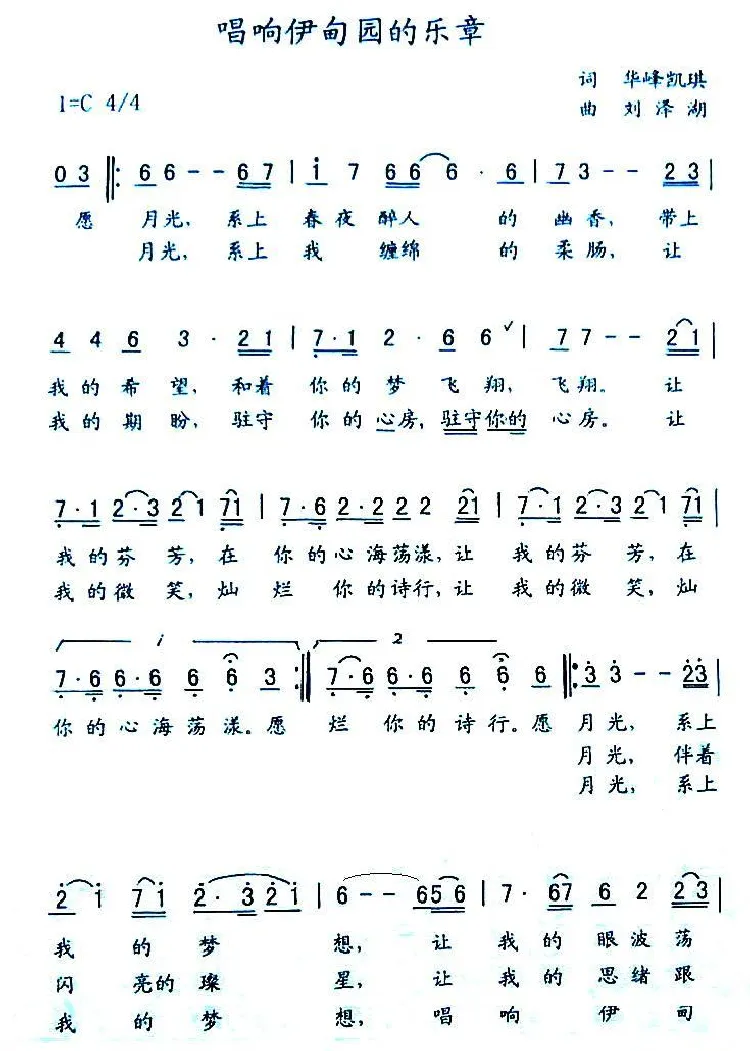 唱响伊甸园的乐章
词 华峰凯琪
1=C 4/4
曲 刘泽湖
0 3 ‖: 6 6 - - 6 7 | i 7 6 6 6 · 6 | 7 3 - - 2 3 |
愿 月光, 系上 春夜醉人 的 幽香, 带上
月光, 系上 我 缠绵 的 柔肠, 让
4 4 6 3 · 2 1 | 7 · 1 2 · 6 6 ˅ | 7 7 - - 2 1 |
我的希望, 和着 你的梦 飞翔, 飞翔。 让
我的期盼, 驻守 你的心房, 驻守你的 心房。 让
7 · 1 2 · 3 2 1 7 1 | 7 · 6 2 · 2 2 2 2 1 | 7 · 1 2 · 3 2 1 7 1 |
我的芬芳, 在 你的心海荡漾, 让 我的芬芳, 在
我的微笑, 灿烂 你的诗行, 让 我的微笑, 灿
1 2
7 · 6 6 · 6 6 6 3 :‖ 7 · 6 6 · 6 6 6 6 ‖: 3 3 - - 2 3 |
你的心海荡漾。愿 烂 你的诗行。愿 月光, 系上
月光, 伴着
月光, 系上
2 i 7 i 2 · 3 2 i | 6 - - 6 5 6 | 7 · 6 7 6 2 2 3 |
我 的梦 想, 让 我的眼波荡
闪 亮的璨 星, 让 我的思绪跟
我 的梦 想, 唱 响 伊 甸